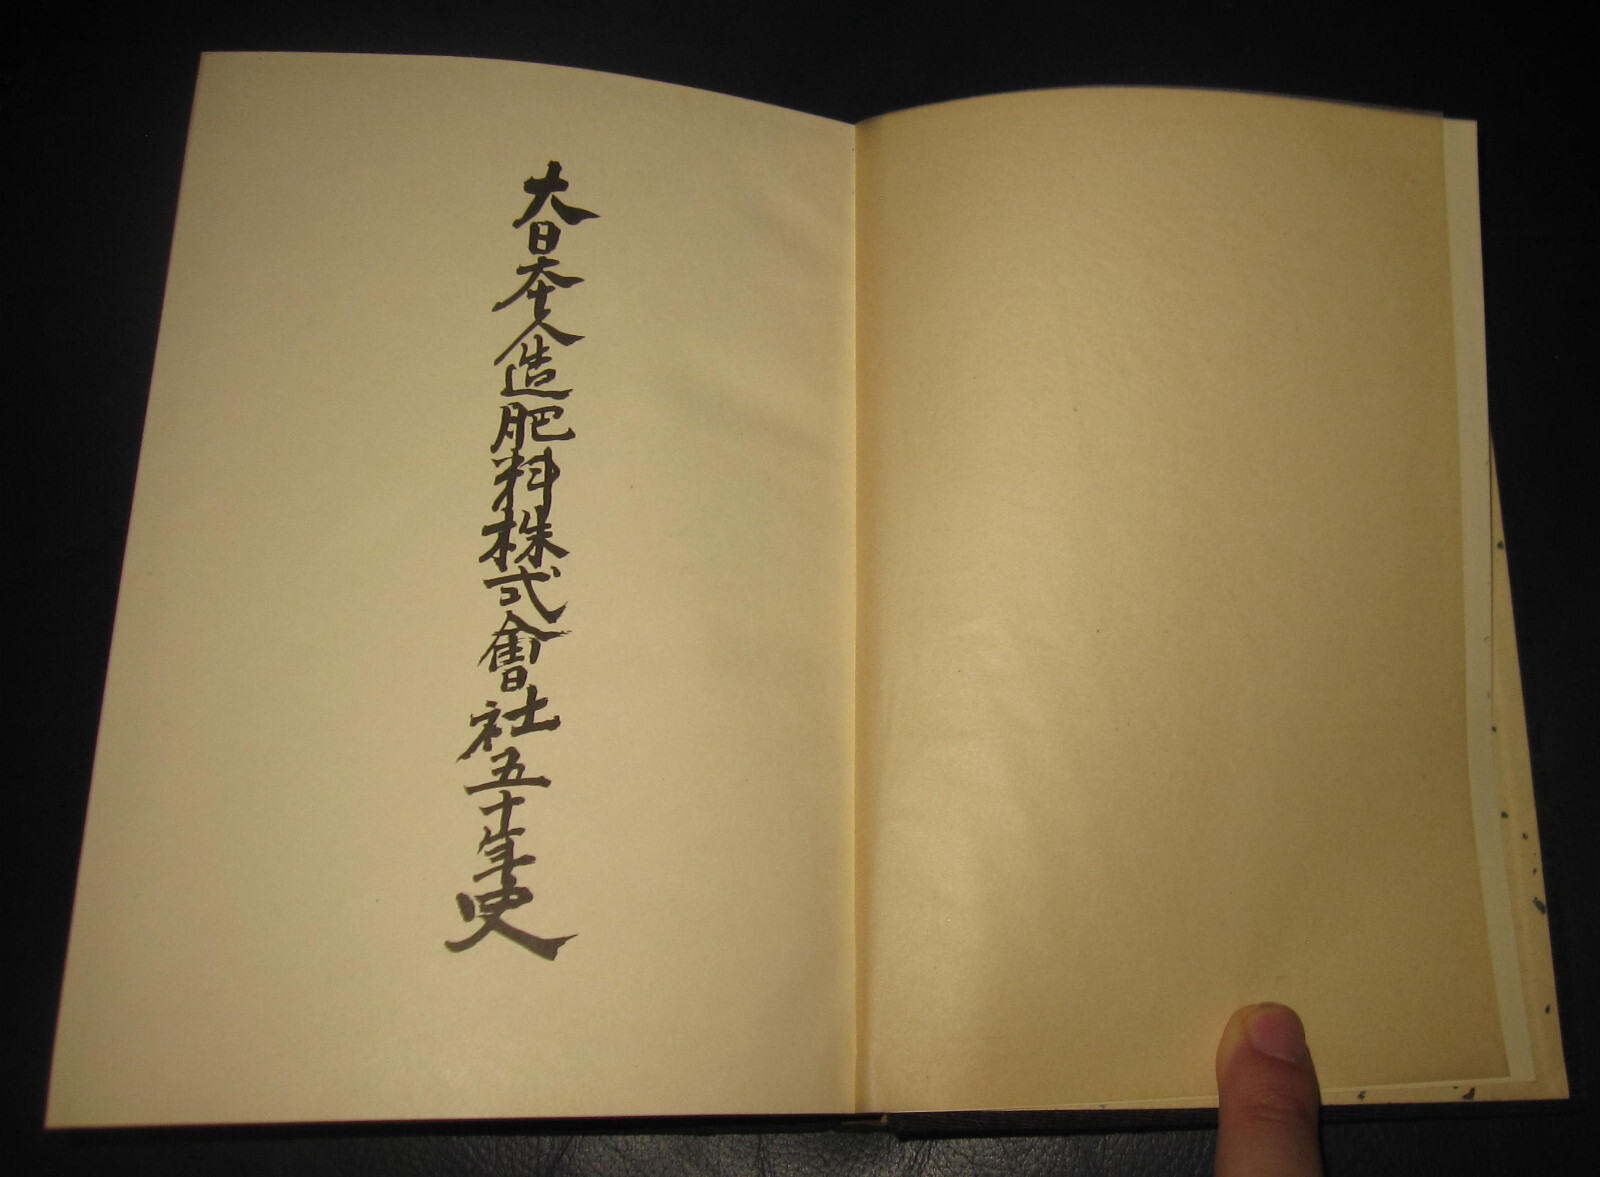 大日本人造肥料株式會社五十年史